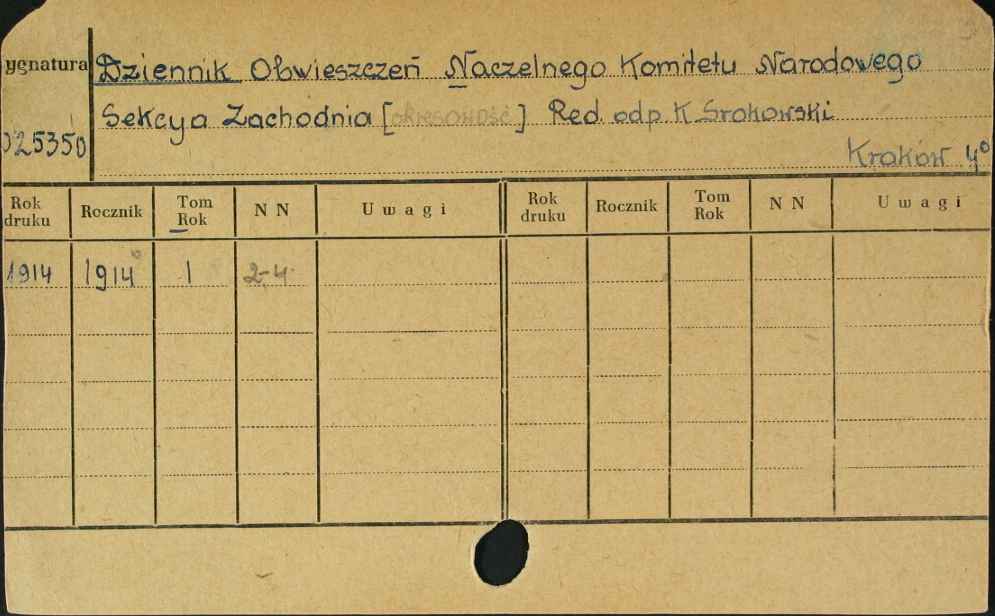 ygnatura
Dziennik Obwieszczeń Naczelnego Komitetu Narodowego
Sekcya Zachodnia [okresowość] Red. odp. K Srokowski
025350
Kraków 4°
Rok druku Rocznik Tom Rok NN Uwagi Rok druku Rocznik Tom Rok NN Uwagi
1914 1914 1 2-4